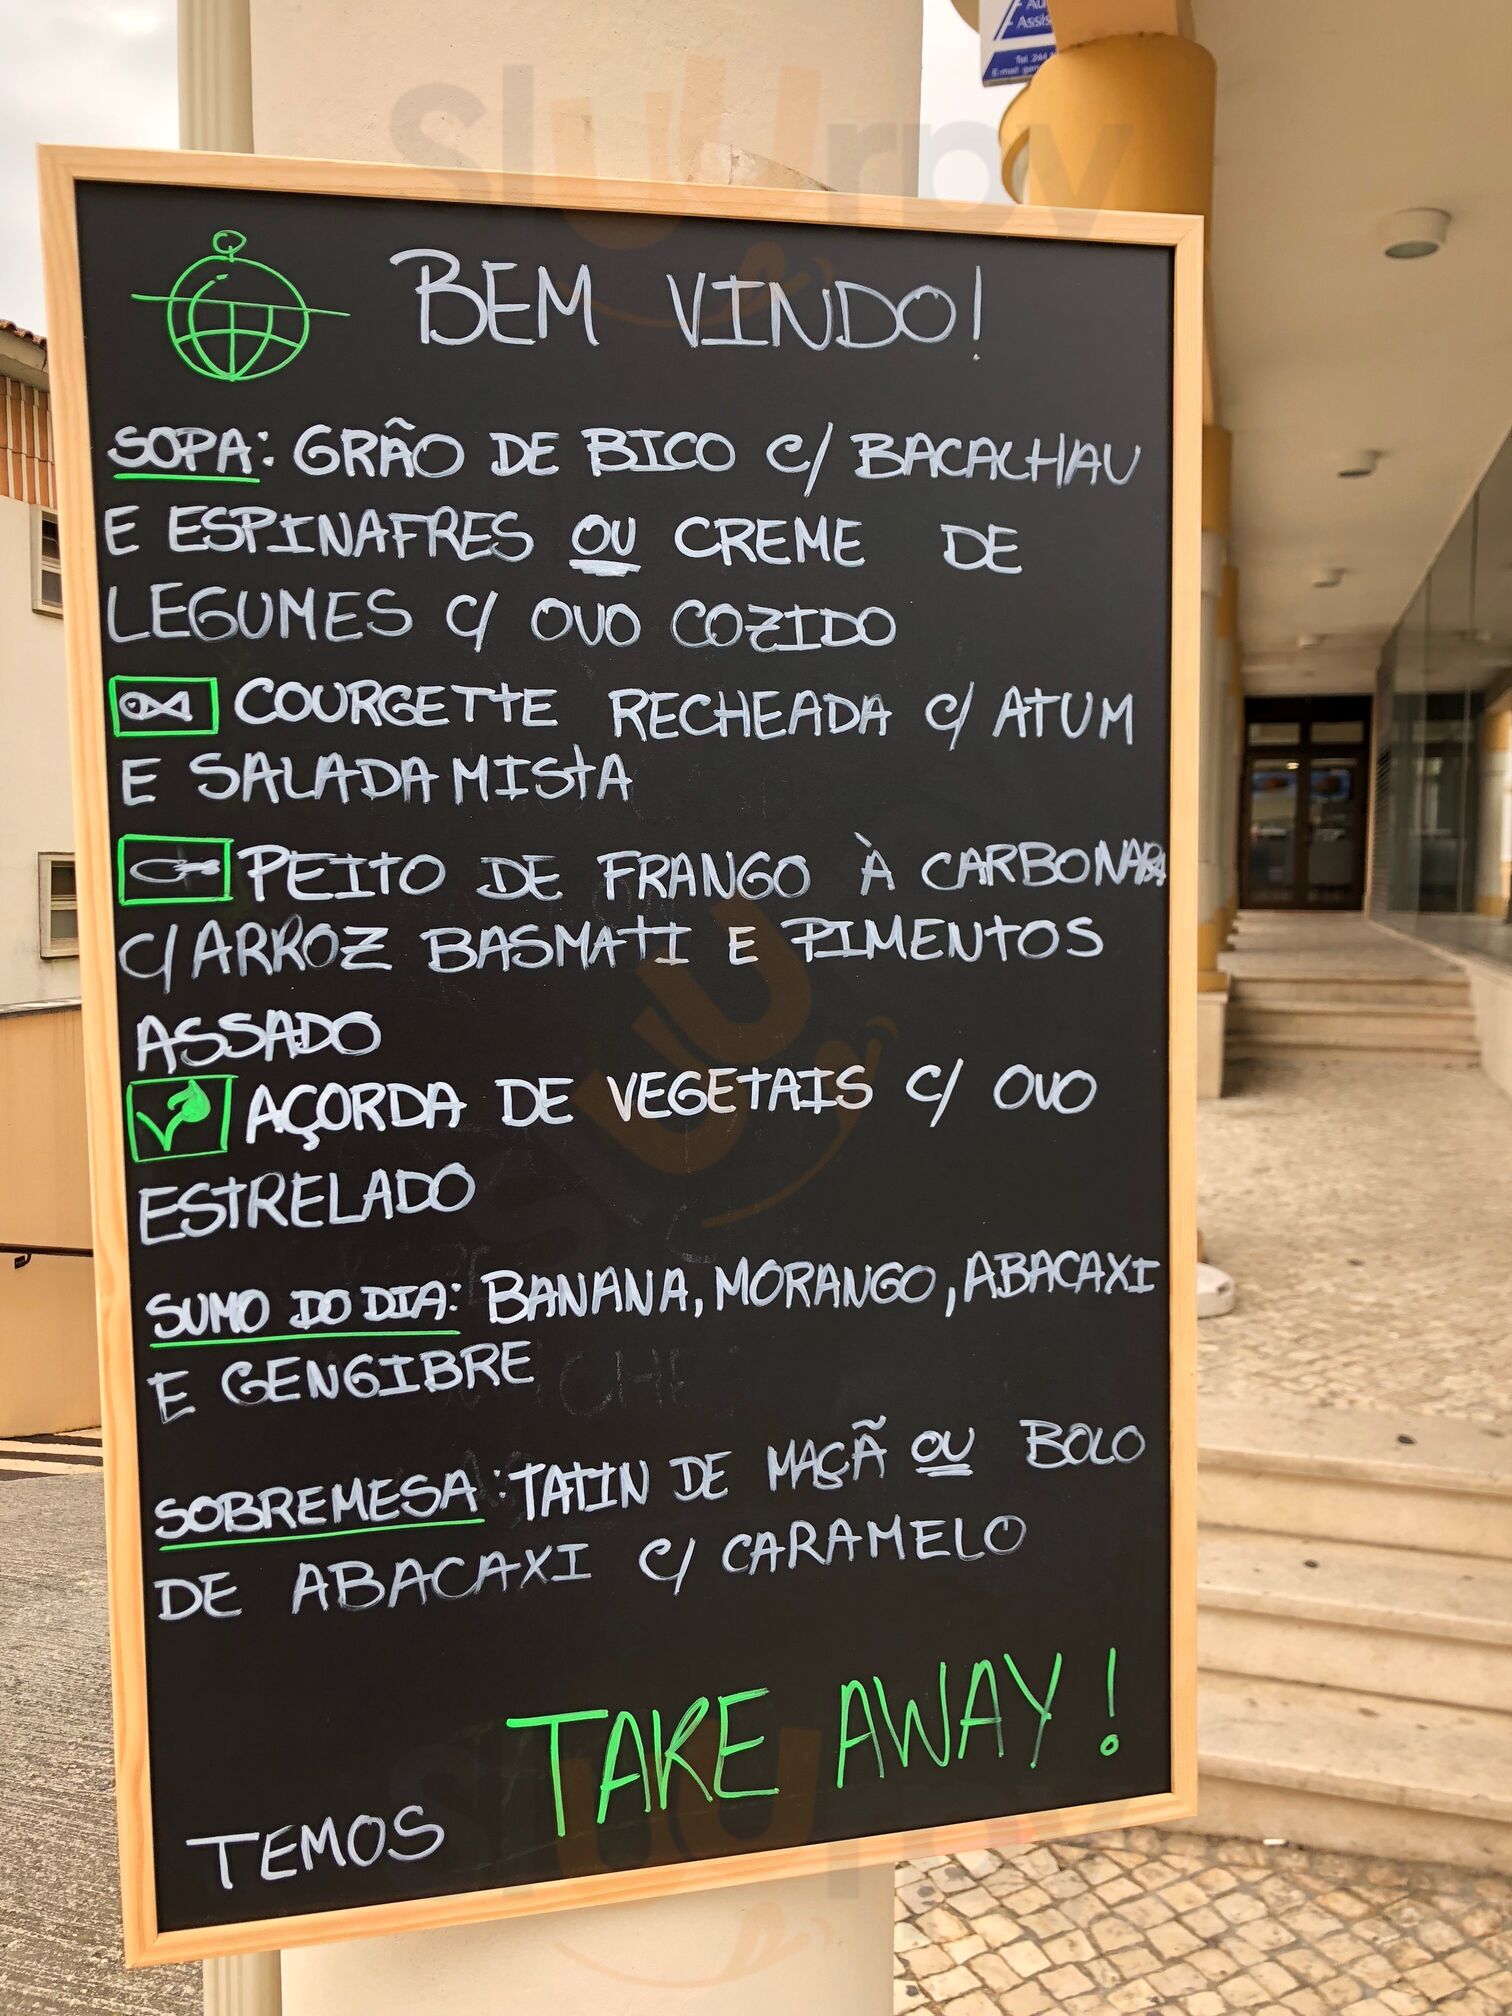 Assis
Tel. 244
E-mail:
sluurpy
BEM VINDO!
SOPA: GRÃO DE BICO C/ BACALHAU
E ESPINAFRES OU CREME DE
LEGUMES C/ OVO COZIDO
COURGETTE RECHEADA C/ ATUM
E SALADA MISTA
PEITO DE FRANGO À CARBONARA
C/ ARROZ BASMATI E PIMENTOS
ASSADO
AÇORDA DE VEGETAIS C/ OVO
ESTRELADO
SUMO DO DIA: BANANA, MORANGO, ABACAXI
E GENGIBRE
SOBREMESA: TATIN DE MAÇÃ OU BOLO
DE ABACAXI C/ CARAMELO
TAKE AWAY!
TEMOS
sluurpy